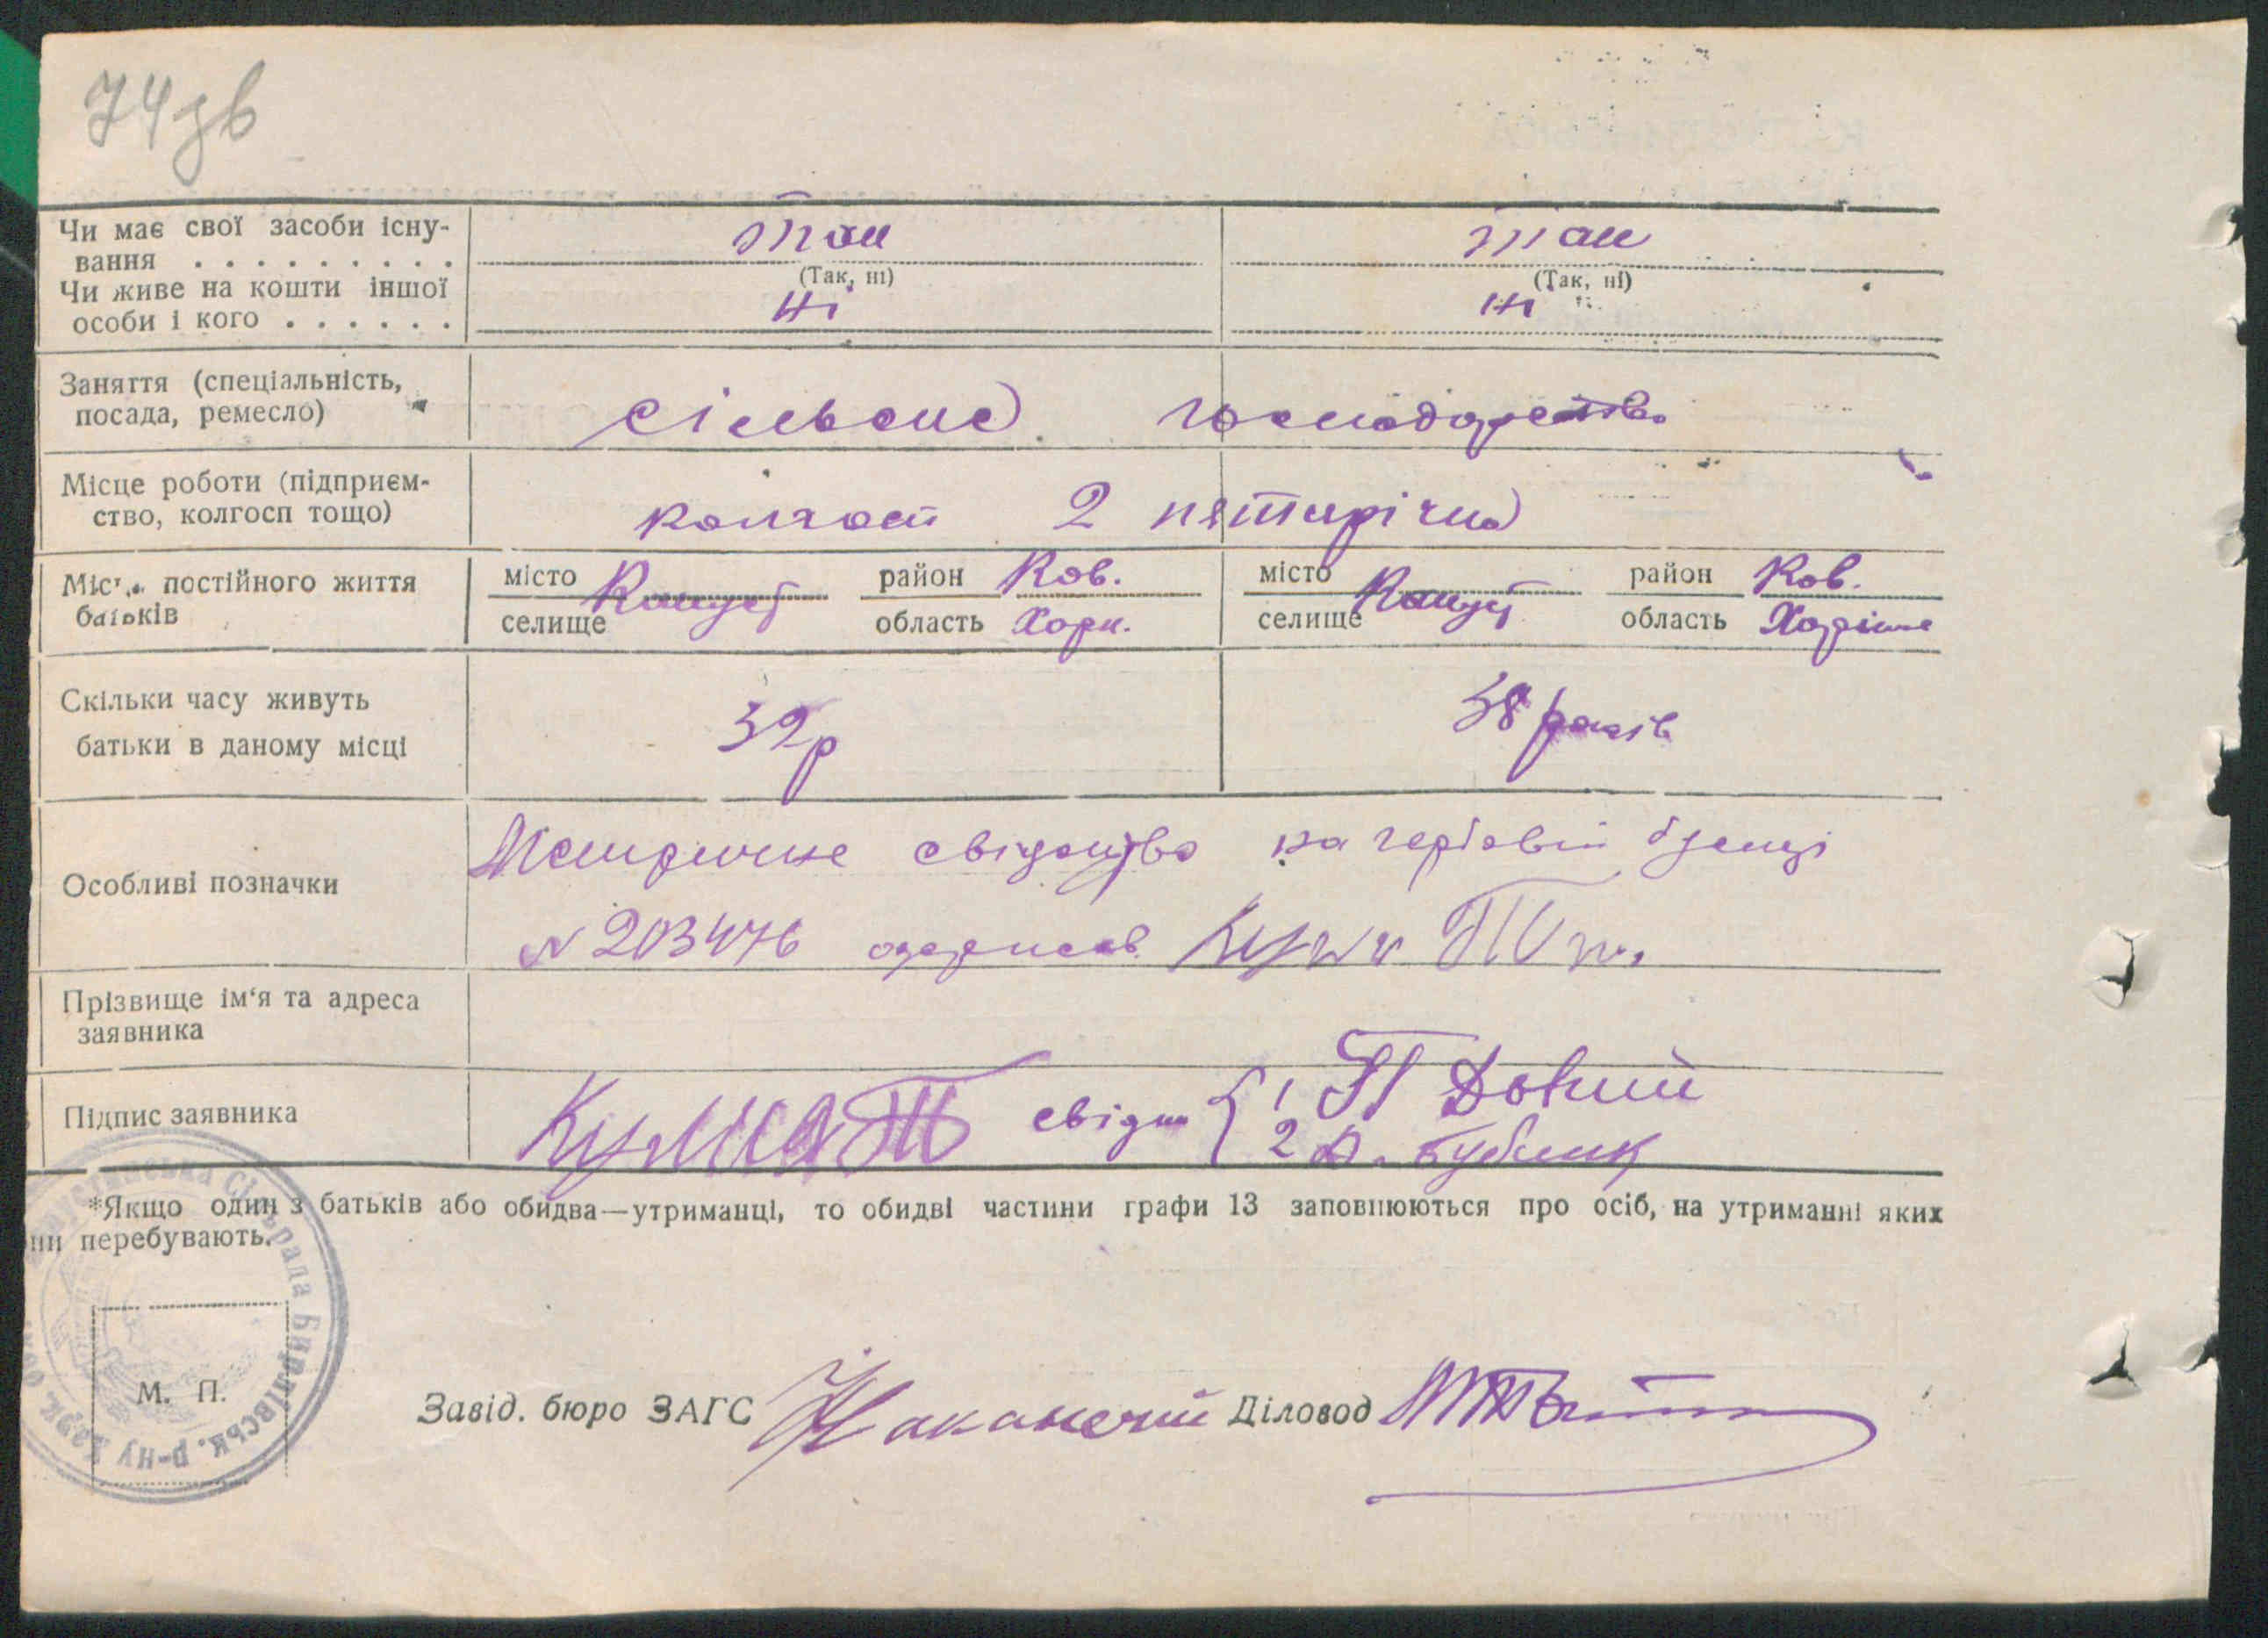 74 зв
Чи має свої засоби існу-
вання . . . . . . . . .
так
так
(Так, ні)
(Так, ні)
Чи живе на кошти іншої
особи і кого . . . . . .
ні
ні
Заняття (спеціальність,
посада, ремесло)
сільське господарство
Місце роботи (підприєм-
ство, колгосп тощо)
колгосп 2 пятирічка
Місце постійного життя
батьків
місто
селище
район Ков.
область Харк.
місто
селище
район Ков.
область
Скільки часу живуть
батьки в даному місці
39 р
38 років
Особливі позначки
Метричне свідоцтво на гербовій
№ 203476 одержав
Прізвище ім'я та адреса
заявника
Підпис заявника
свідки { 1
2 Бублик
*Якщо один з батьків або обидва—утриманці, то обидві частини графи 13 заповнюються про осіб, на утриманні яких
ни перебувають.
Сільрада
р-ну
М. П.
Завід. бюро ЗАГС
Діловод